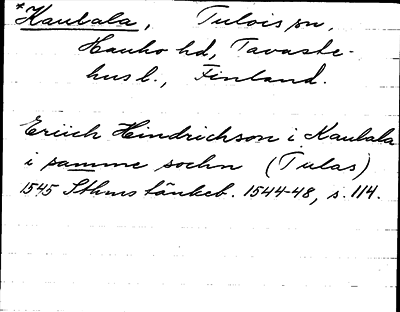 *Kaubala, Tulois sn,
Hauho hd, Tavaste-
hus l., Finland.
Eriich Hindrichson i Kaubala
i samme sochn (Tulas)
1545 Sthms tänkeb. 1544-48, s. 114.